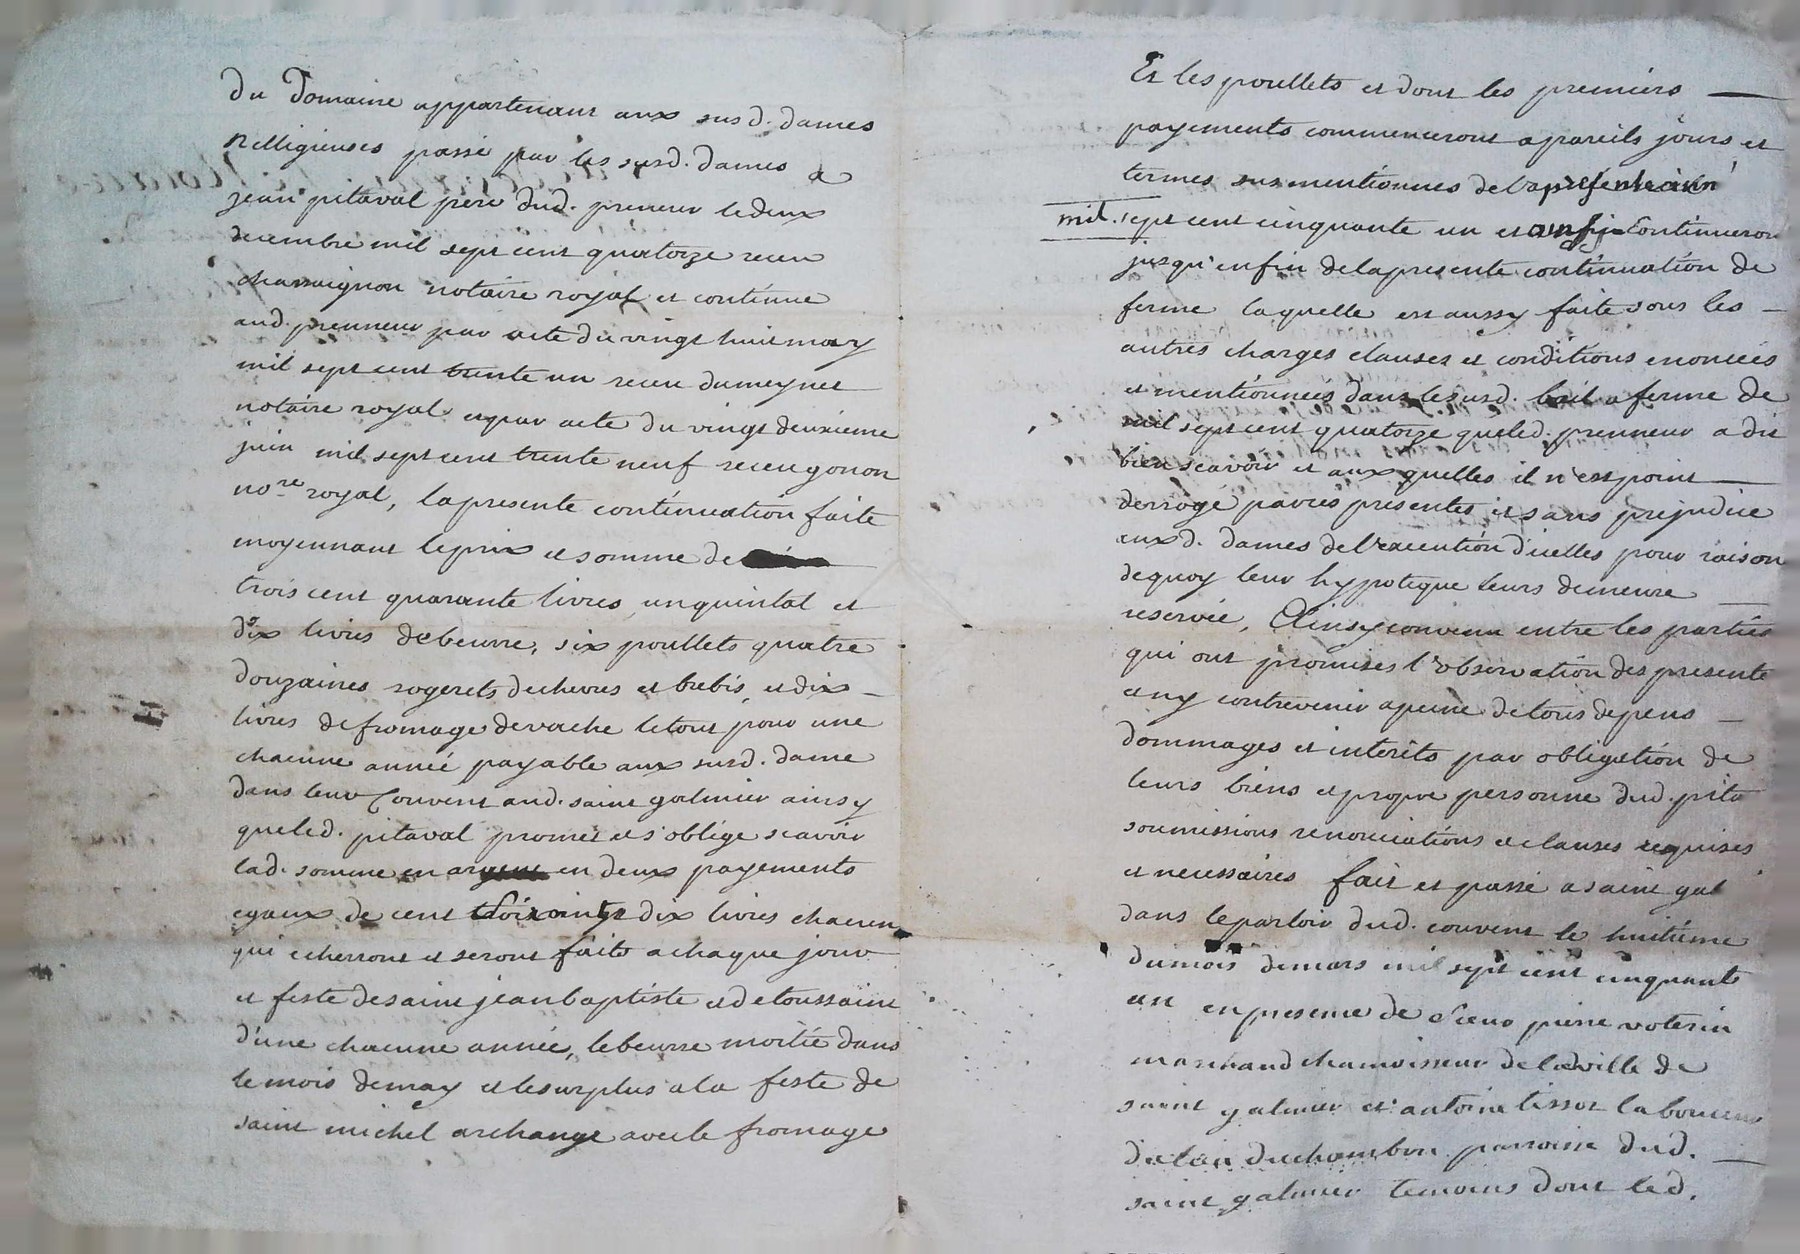 du Domaine appartenant aux susd. dames
Relligieuses passé par les susd. dames a
jean pitaval pere dud. preneur le deux
decembre mil sept cent quatorze receu
chavaignon notaire royal et continue
aud. prenneur par acte du vingt huit may
mil sept cent trente un receu dumeynet
notaire royal et par acte du vingt deuxieme
juin mil sept cent trente neuf receu gonon
no.re royal, la presente continuation faite
moyennant le prix et somme de
trois cent quarante livres, un quintal et
dix livres de beurre, six poullets quatre
douzaines rogerets de chevres et brebis, et dix
livres de fromage de vache le tout pour une
chacune année payable aux susd. dame
dans leur Couvent aud. saint galmier ainsy
que led. pitaval promet et s'oblige scavoir
lad. somme en argent en deux payements
egaux de cent soixante dix livres chacun
qui echerront et seront faits a chaque jour
et feste de saint jean baptiste et de toussaint
d'une chacune année, le beurre moitié dans
le mois de may et le surplus a la feste de
saint michel archange avec le fromage
Et les poullets et dont les premiers
payements commenceront a pareils jours et
termes sus mentionnes de la presente année
mil. sept cent cinquante un et ainsi Continueron
jusqu'en fin de la presente continuation de
ferme laquelle est aussy faite sous les
autres charges clauses et conditions enoncées
et mentionnées dans le susd. bail a ferme de
mil sept cent quatorze que led. prenneur a dit
bien scavoir et aux quelles il n'est point
derrogé par ces presentes et sans prejudice
auxd. dames de l'execution d'icelles pour raison
de quoy leur hypoteque leurs demeure
reservée, Ainsy convenu entre les parties
qui ont promises l'observation des presente
et ny contrevenir a peine de tous depens
dommages et interets par obligation de
leurs biens et propre personne dud. pita
soumissions renonciations et clauses requises
et necessaires fait et passé a saint gal
dans le parloir dud. couvent le huitieme
du mois de mars mil sept cent cinquante
un en presence de Sieur pierre voterin
marchand chamoisseur de lad ville de
saint galmier et antoine tissot laboureur
du lieu du chambon parroisse dud.
saint galmier temoins dont led.